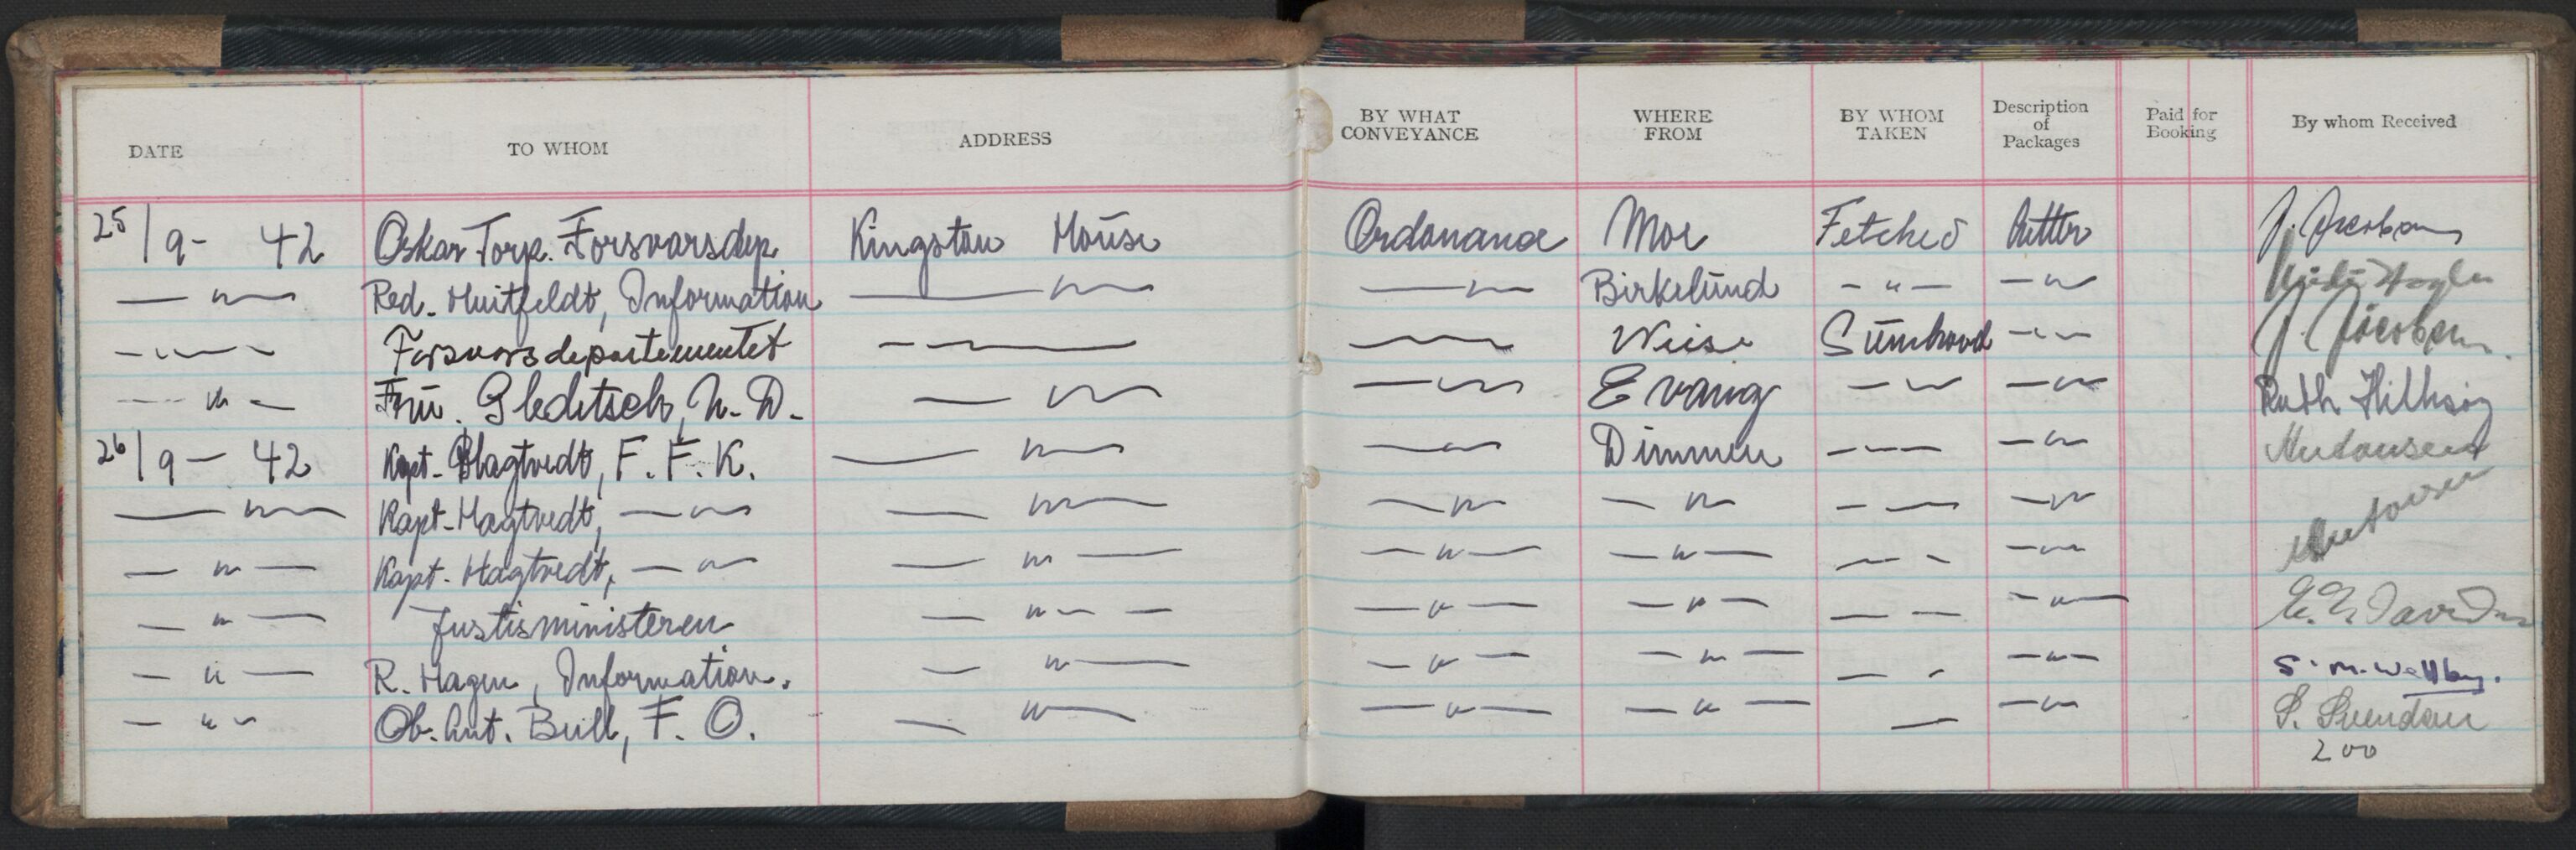 DATE TO WHOM ADDRESS BY WHAT CONVEYANCE WHERE FROM BY WHOM TAKEN Description of Packages Paid for Booking By whom Received
25/9- 42 Oskar Torp. Forsvarsdep. Kingston House Ordonanse Moe Fetched J. Jacobsen
— " — Red. Huitfeldt, Information — " — — " — Birkelund - " - - " -
— " — Forsvarsdepartementet — " — — " — Weise Sundvord - " - J. Jacobsen.
— " — Fru. Gleditsch, U. D. — " — — " — Evang — " — — " — Ruth
26/9 - 42 Kapt. Hagtvedt, F. F. K. — " — — " — Dimmen — " — — " —
— " — Kapt. Hagtvedt, — " — — " — — " — — " — — " — — " —
— " — Kapt. Hagtvedt, — " — — " — — " — — " — — " — — " —
— " — Justisministeren — " — — " — — " — — " — — " —
— " — R. Hagen, Information. — " — — " — — " — — " — — " — S. M. Wellby.
— " — Ob. Lnt. Bull, F. O. — " — — " — — " — — " — — " — S. Svendsen
200